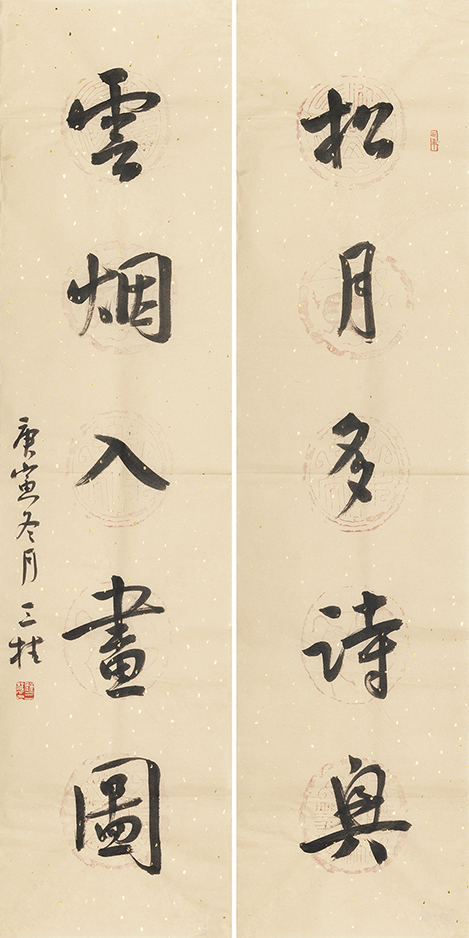 松月多詩興
雲烟入畫圖
庚寅冬月 三桂